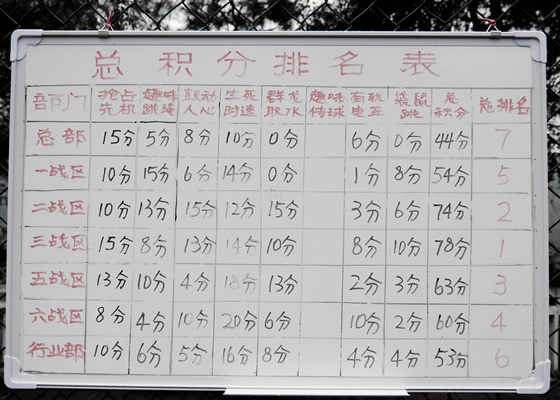 总积分排名表
部门 抢占先机 趣味跳绳 鼓动人心 生死时速 群龙取水 趣味传球 有轨电车 袋鼠跳 总积分 总排名
总部 15分 5分 8分 10分 0分 6分 0分 44分 7
一战区 10分 15分 6分 14分 0分 1分 8分 54分 5
二战区 10分 13分 15分 12分 15分 3分 6分 74分 2
三战区 15分 8分 13分 14分 10分 8分 10分 78分 1
五战区 13分 10分 4分 18分 13分 2分 3分 63分 3
六战区 8分 4分 10分 20分 6分 10分 2分 60分 4
行业部 10分 6分 5分 16分 8分 4分 4分 53分 6